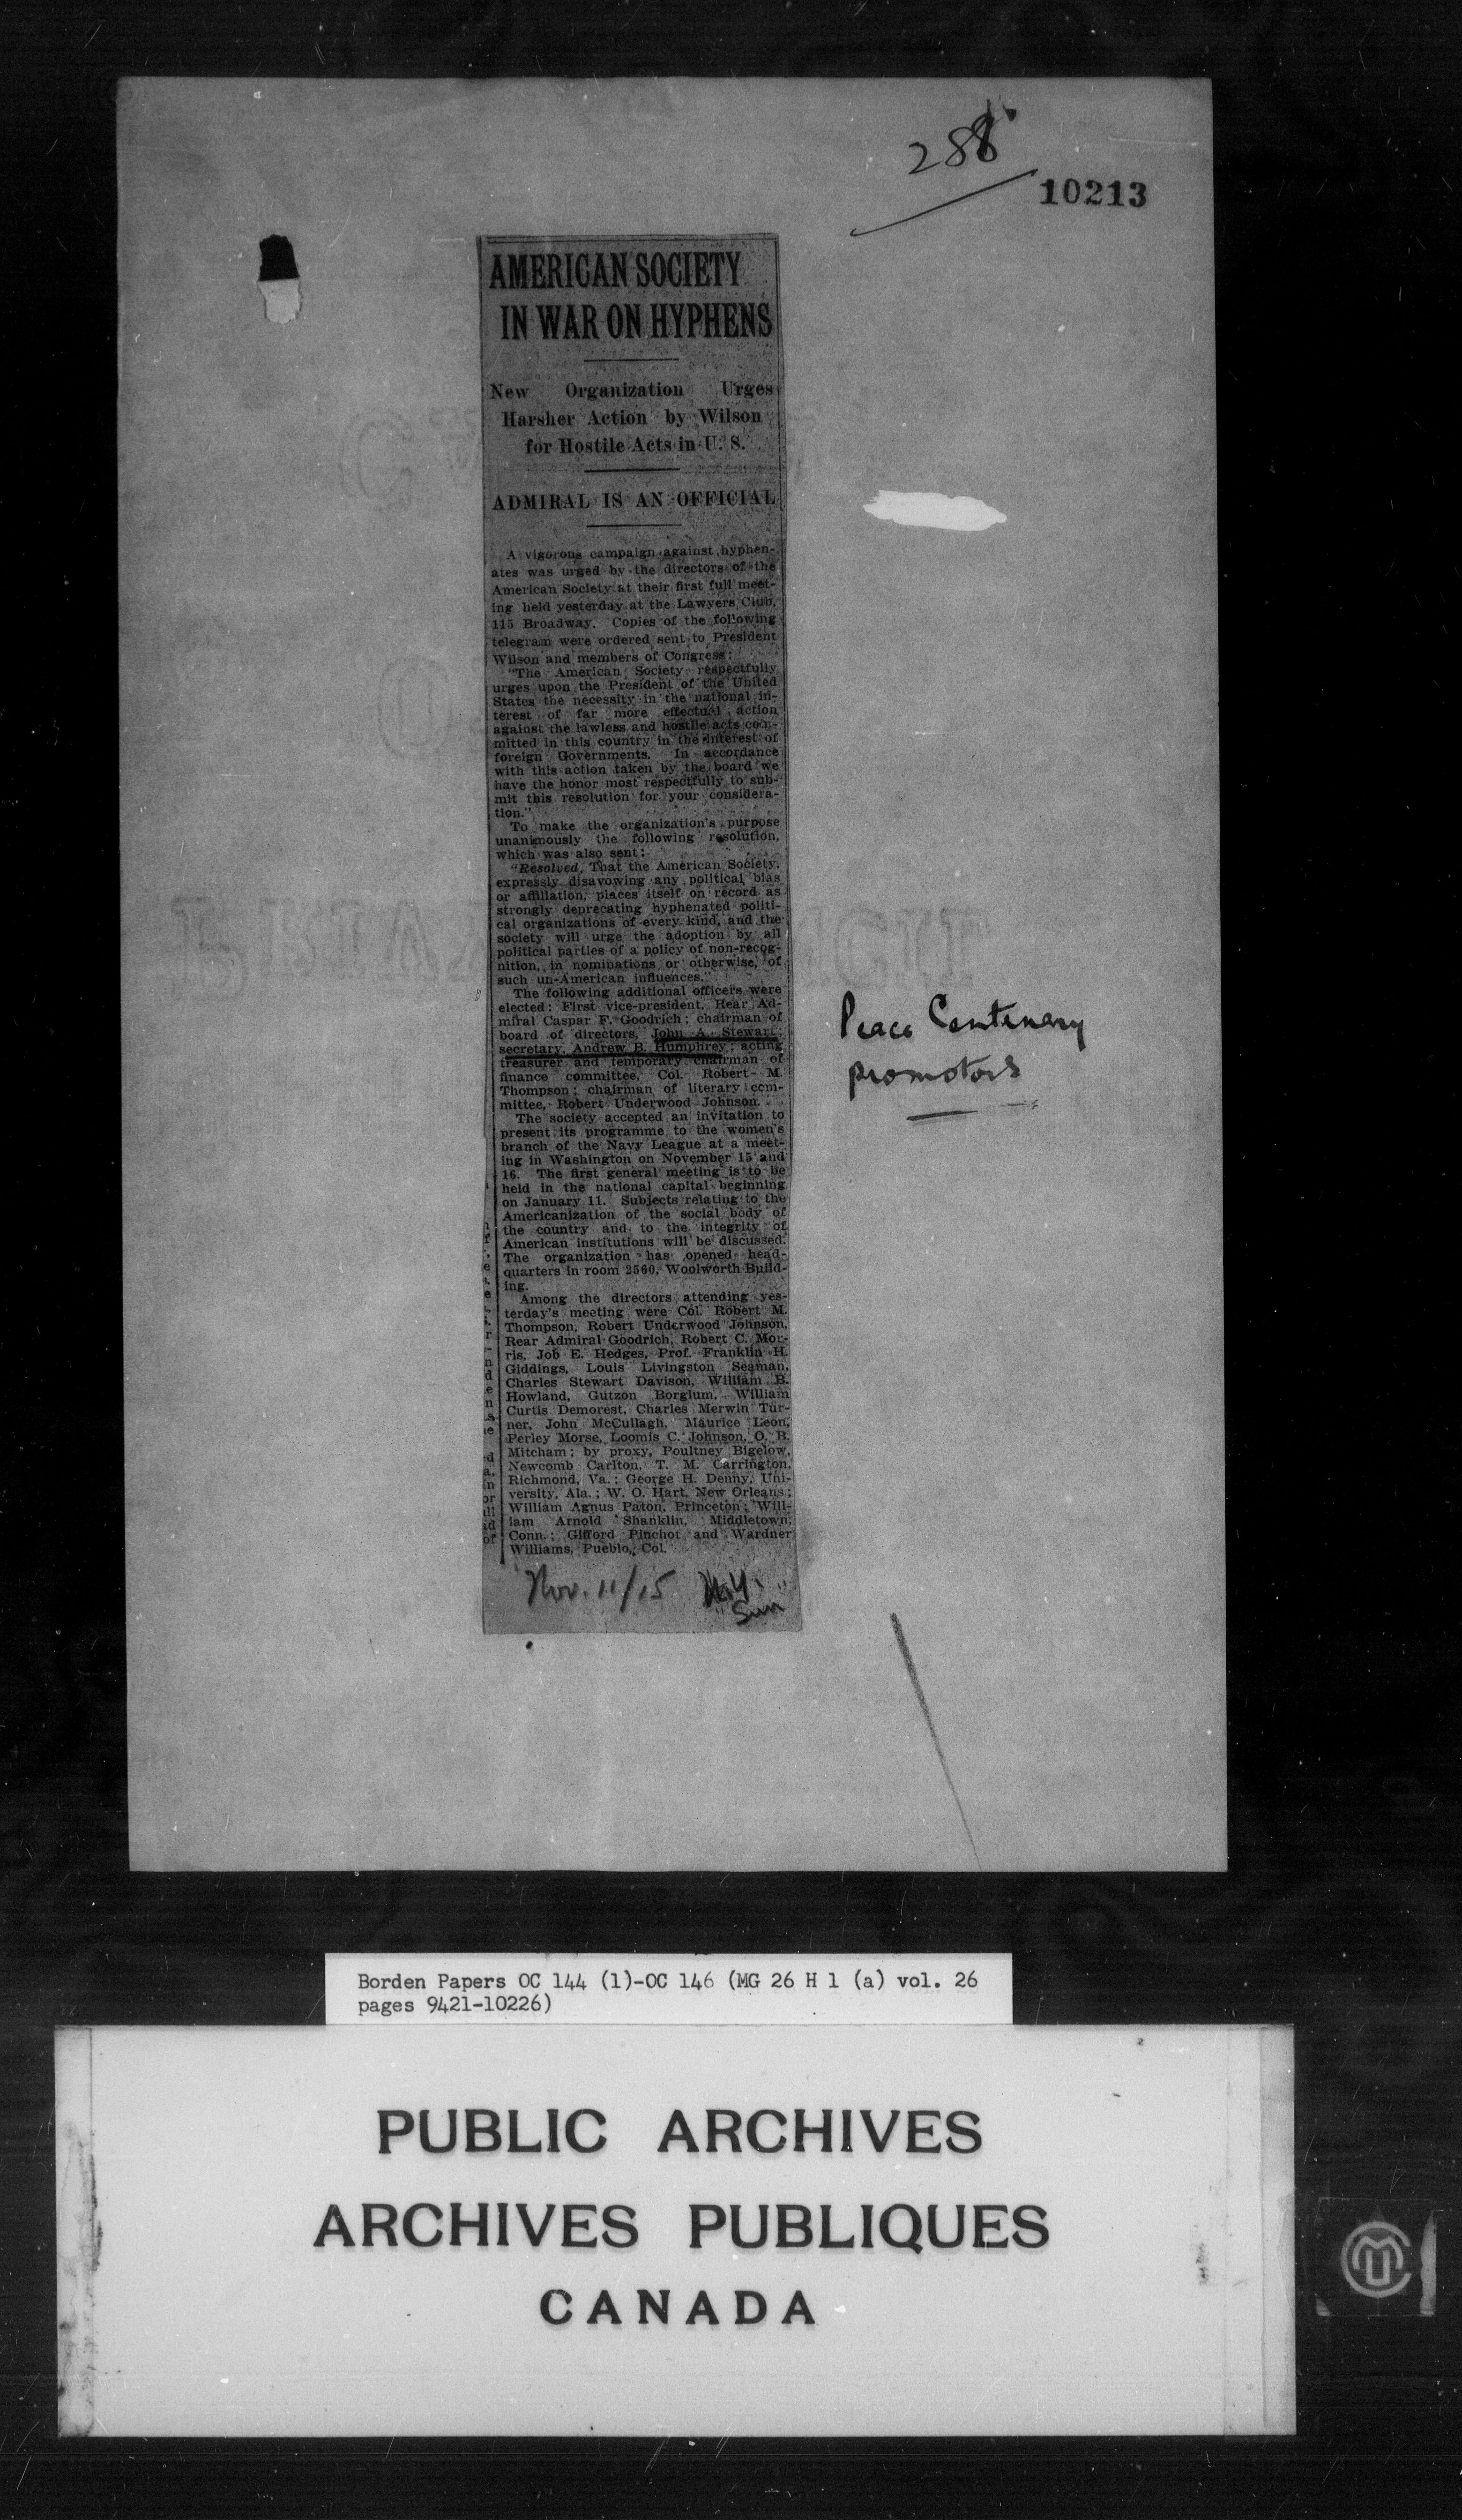 288
10213
AMERICAN SOCIETY
IN WAR ON HYPHENS
New Organization Urges
Harsher Action by Wilson
for Hostile Acts in U. S.
ADMIRAL IS AN OFFICIAL
A vigorous campaign against hyphen-
ates was urged by the directors of the
American Society at their first full meet-
ing held yesterday at the Lawyers Club,
115 Broadway. Copies of the following
telegram were ordered sent to President
Wilson and members of Congress:
"The American Society respectfully
urges upon the President of the United
States the necessity in the national in-
terest of far more effectual action
against the lawless and hostile acts com-
mitted in this country in the interest of
foreign Governments. In accordance
with this action taken by the board we
have the honor most respectfully to sub-
mit this resolution for your considera-
tion."
To make the organization's purpose
unanimously the following resolution,
which was also sent:
"Resolved, That the American Society,
expressly disavowing any political bias
or affiliation, places itself on record as
strongly deprecating hyphenated politi-
cal organizations of every kind, and the
society will urge the adoption by all
political parties of a policy of non-recog-
nition, in nominations or otherwise, of
such un-American influences."
The following additional officers were
elected: First vice-president, Rear Ad-
miral Caspar F. Goodrich; chairman of
board of directors, John A. Stewart;
secretary, Andrew B. Humphrey; acting
treasurer and temporary chairman of
finance committee, Col. Robert M.
Thompson; chairman of literary com-
mittee, Robert Underwood Johnson.
The society accepted an invitation to
present its programme to the women's
branch of the Navy League at a meet-
ing in Washington on November 15 and
16. The first general meeting is to be
held in the national capital beginning
on January 11. Subjects relating to the
Americanization of the social body of
the country and to the integrity of
American institutions will be discussed.
The organization has opened head-
quarters in room 2560, Woolworth Build-
ing.
Among the directors attending yes-
terday's meeting were Col. Robert M.
Thompson, Robert Underwood Johnson,
Rear Admiral Goodrich, Robert C. Mor-
ris, Job E. Hedges, Prof. Franklin H.
Giddings, Louis Livingston Seaman,
Charles Stewart Davison, William B.
Howland, Gutzon Borglum, William
Curtis Demorest, Charles Merwin Tur-
ner, John McCullagh, Maurice Leon,
Perley Morse, Loomis C. Johnson, O. B.
Mitcham; by proxy, Poultney Bigelow,
Newcomb Carlton, T. M. Carrington,
Richmond, Va.; George H. Denny, Uni-
versity, Ala.; W. O. Hart, New Orleans;
William Agnus Paton, Princeton; Will-
iam Arnold Shanklin, Middletown,
Conn.; Gifford Pinchot and Wardner
Williams, Pueblo, Col.
Nov. 11/15 N.Y.
Sun
Peace Centenary
promotors
Borden Papers OC 144 (1)-OC 146 (MG 26 H 1 (a) vol. 26
pages 9421-10226)
PUBLIC ARCHIVES
ARCHIVES PUBLIQUES
CANADA